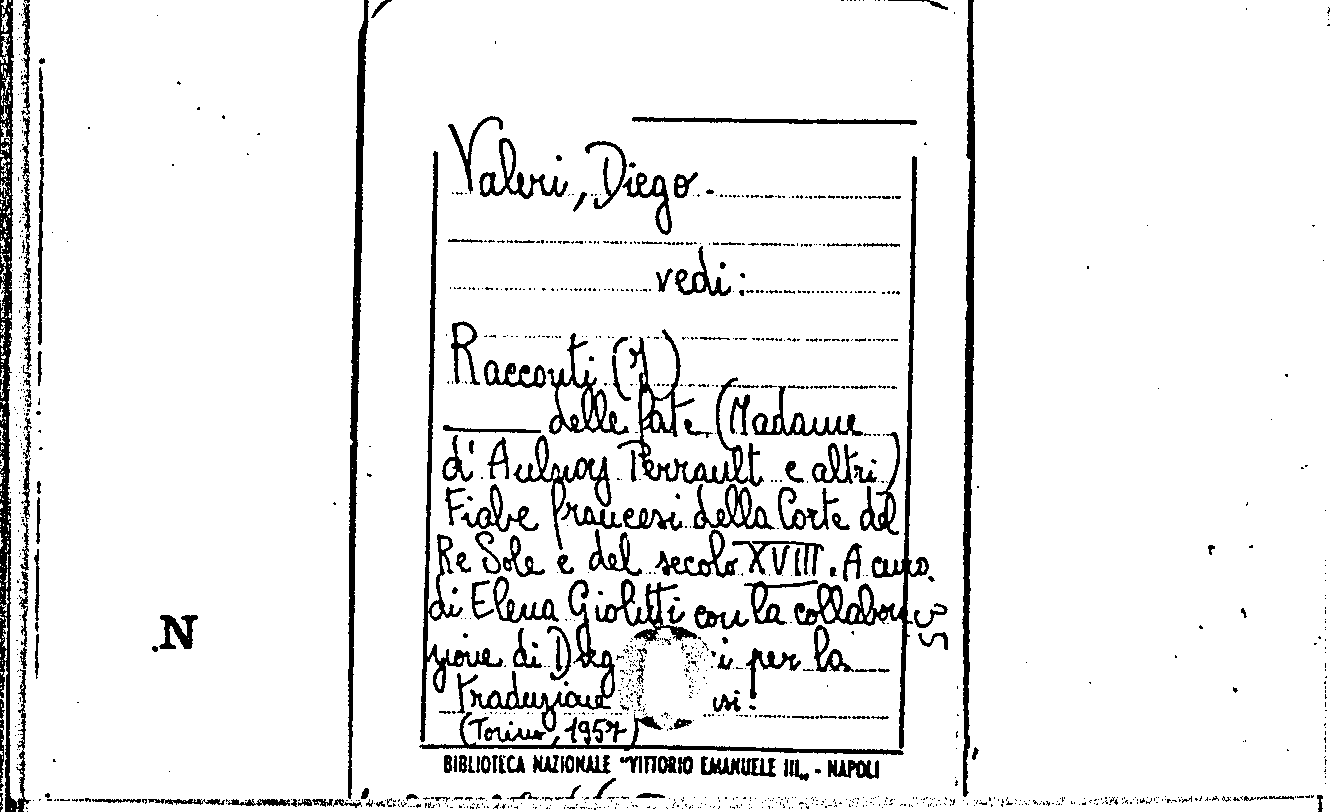 Valeri, Diego.
vedi:
Racconti (I)
delle fate (Madame
d'Aulnoy Perrault e altri)
Fiabe francesi della Corte del
Re Sole e del secolo XVIII. A cura
di Elena Giolitti con la collabora
zione di Dieg i per la
traduzione si.
(Torino, 1957)
35
.N
BIBLIOTECA NAZIONALE "VITTORIO EMANUELE III„ - NAPOLI